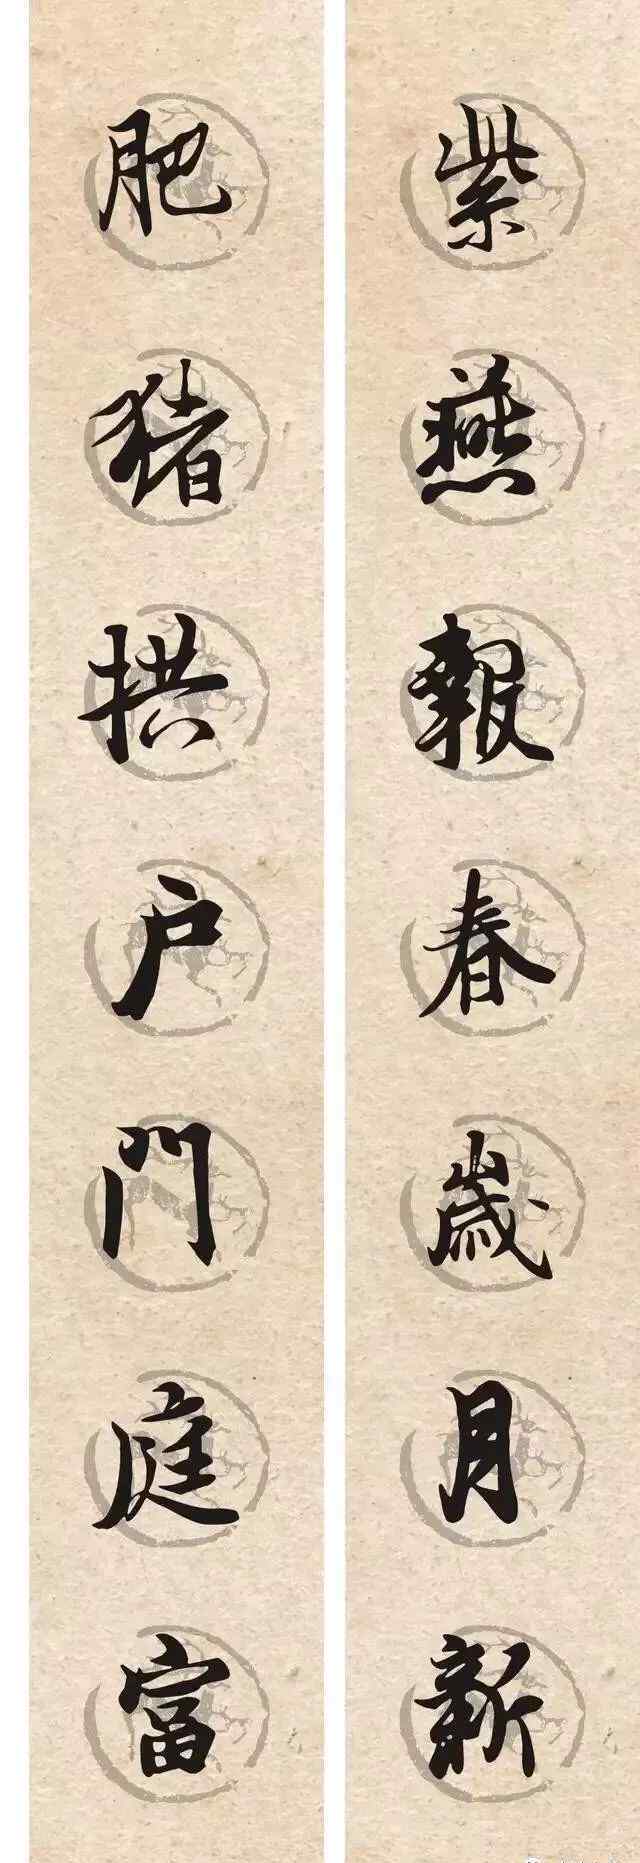 紫燕報春歲月新
肥猪拱户門庭富